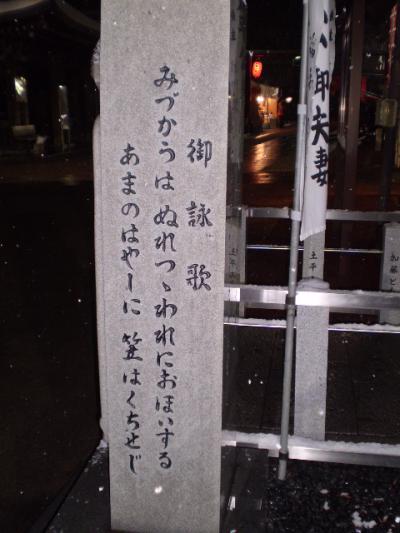 御詠歌
みづからは ぬれつゝわれにおほいする
あまのはやしに 笠はくちせじ
御夫妻
土平
加藤